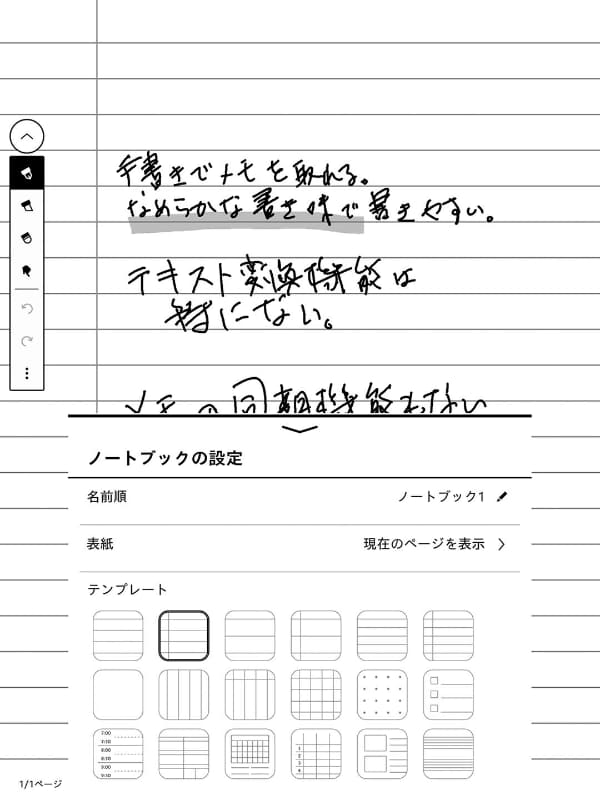 手書きでメモを取れる。
なめらかな書き味で書きやすい。
テキスト変換機能は
特にない。
メモの同期機能もない
ノートブックの設定
名前順 ノートブック1
表紙 現在のページを表示
テンプレート
7:00
7:10
8:10
8:00
9:10
9:00
1
2
3
4
1/1ページ